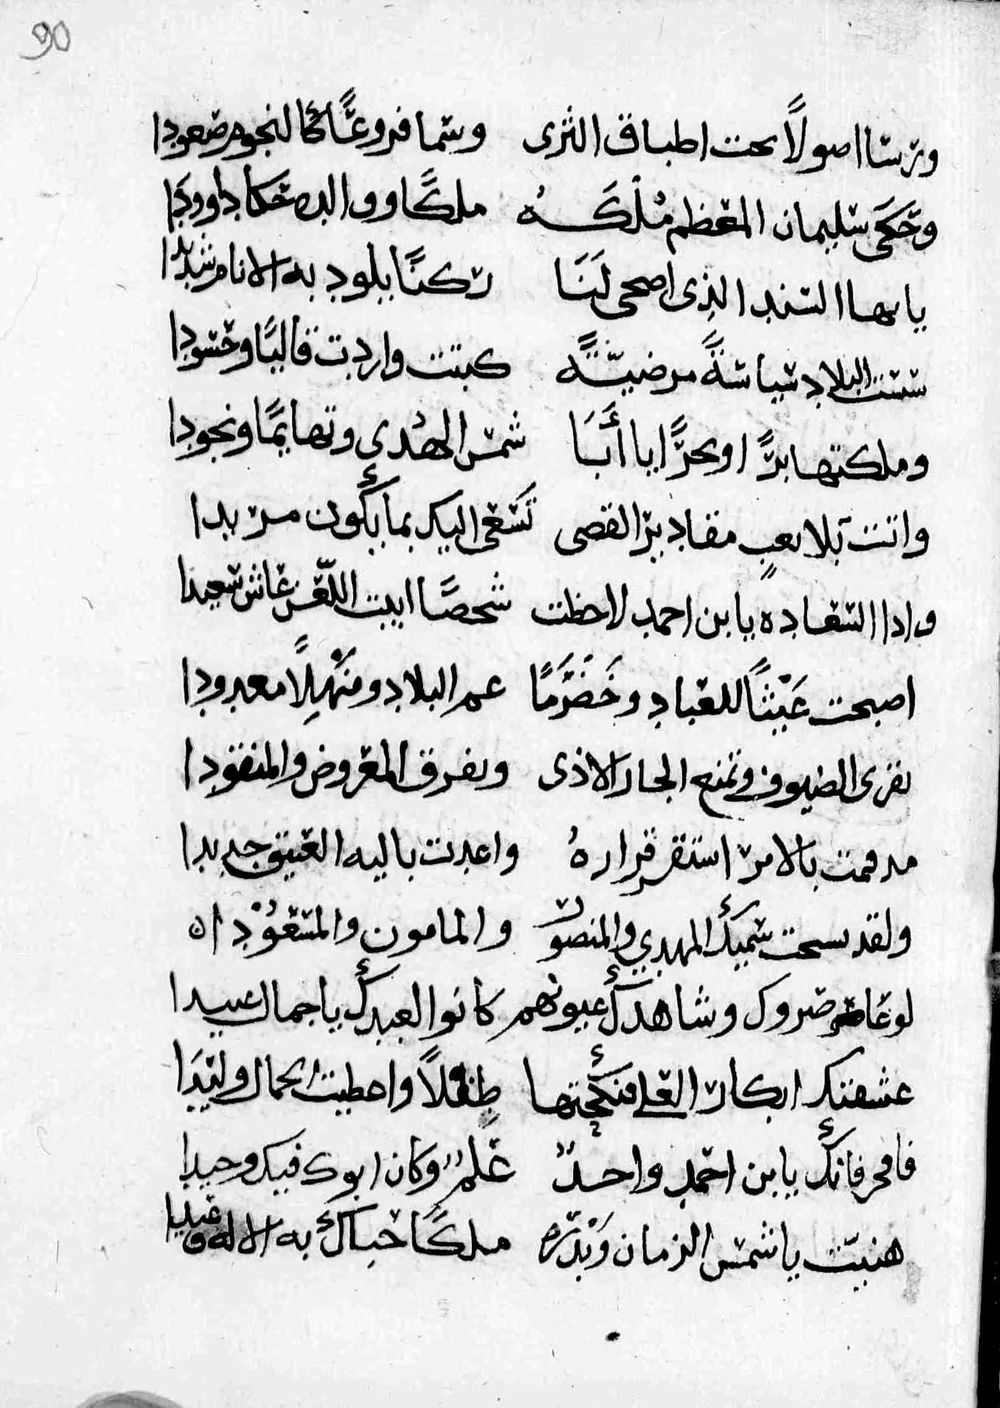 90
ورسا اصولاً تحت اطباق الثرى وسما فروعًا كالنجوم صعودا
وحَكَى سليمان المعظم مُلْكَهُ ملكًا ووالده حكا داوودا
يا ايها السند الذى اضحى لَنَا ركنًا يلود به الانام شديدا
سست البلاد سياسةً مرضيّةً كبتت واردت قاليًا وحسودا
وملكتها برًّا وبحرًا يا أَبَا شمس الهُدى وتهايمًا ونجودا
واتتت بلا تعبٍ مقادير القصى تَسْعَى اليك بما يكون مريدا
واذا السعاده يا بن احمد لاحظت شخصًا ابيت اللّعن عاش سعيدا
اصبحت غَيْثًا للعباد وخَضْرَمًا عم البلاد ومَنْهلاً معدودا
تقرى الضيوف وتمنع الجار الاذى وتفرق المعروض والمنقودا
مد قمت بالامر استقر قرارهُ واعدت باليه العتيق جديدا
ولقد نسخت سَمِيَّكَ المهدي والمنصور والمامون والمسعُوْدا
لو عاصروك وشاهدكَ عيونهم كانوا لعبدكَ يا جمال عبيدا
عشقتك ابكار العلى فنكحتها طفلاً واعطيت الجمال وليدَا
فافخر فانكَ يا بن احمد واحدٌ علم وكان ابوك فيك وحيدا
هنيت يا شمس الزمان وبَدْرَه ملكًا حباكَ به الاله وعيدا